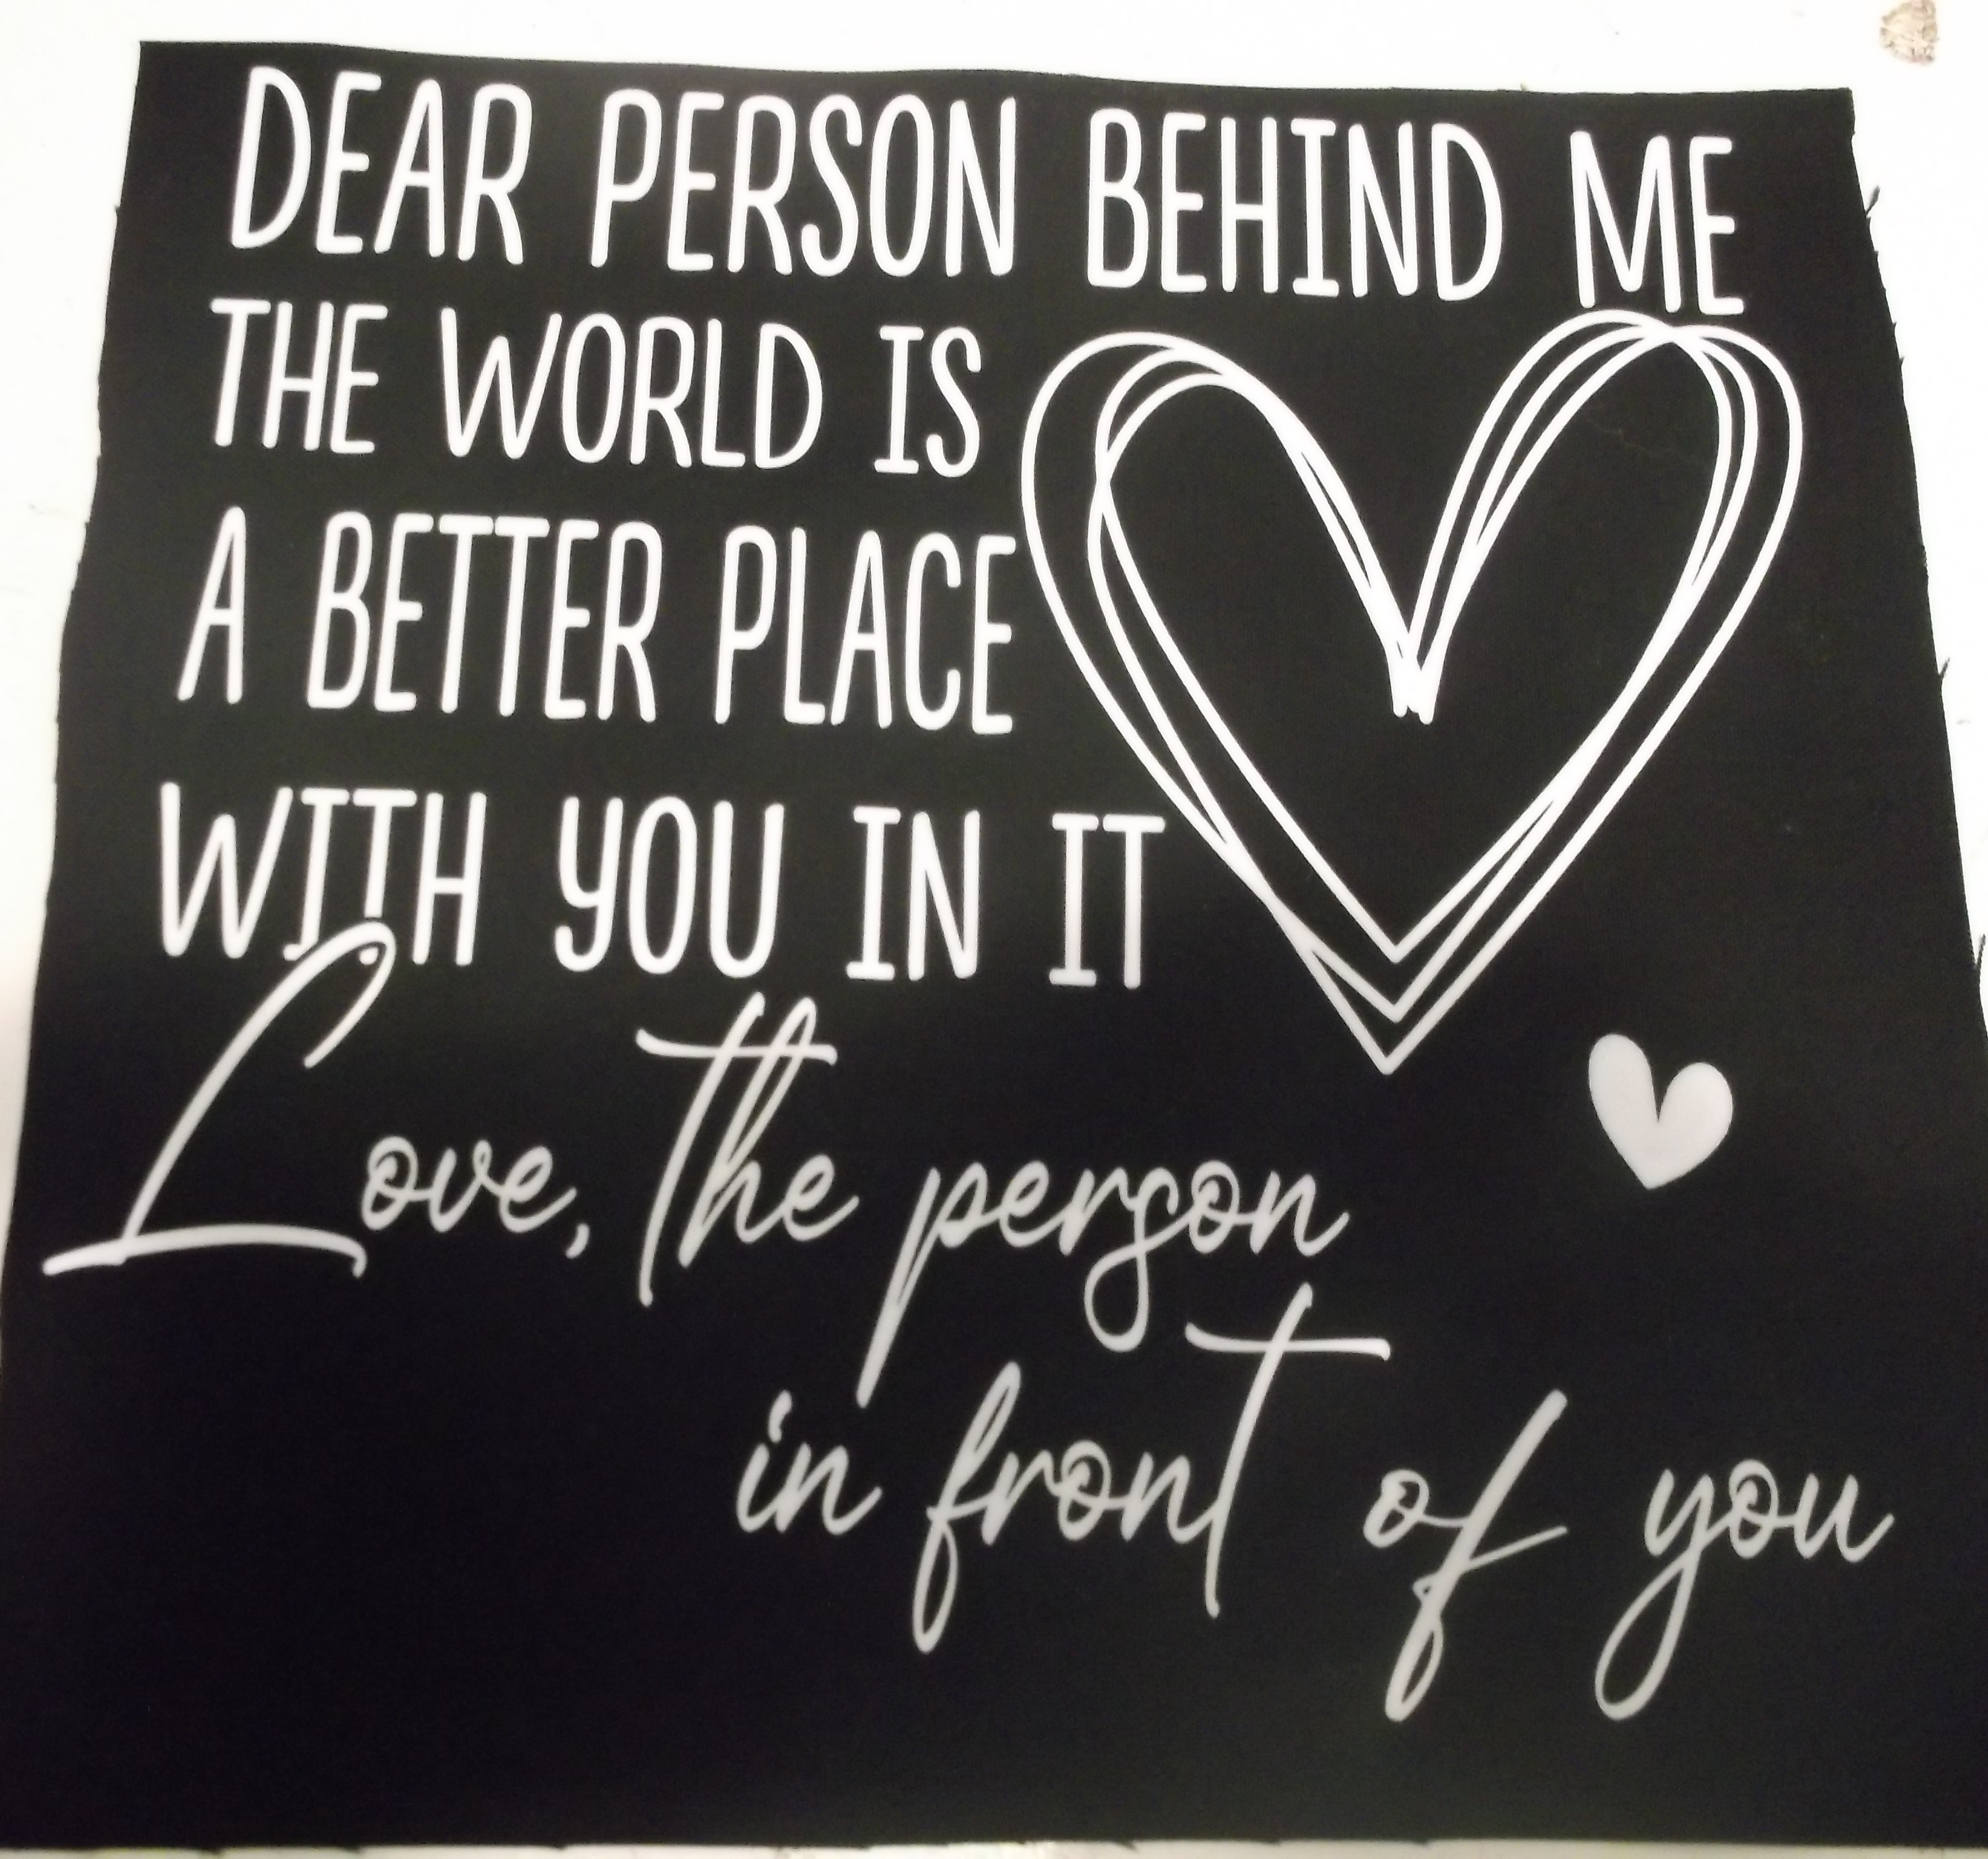 DEAR PERSON BEHIND ME
THE WORLD IS
A BETTER PLACE
WITH YOU IN IT
Love, the person
in front of you